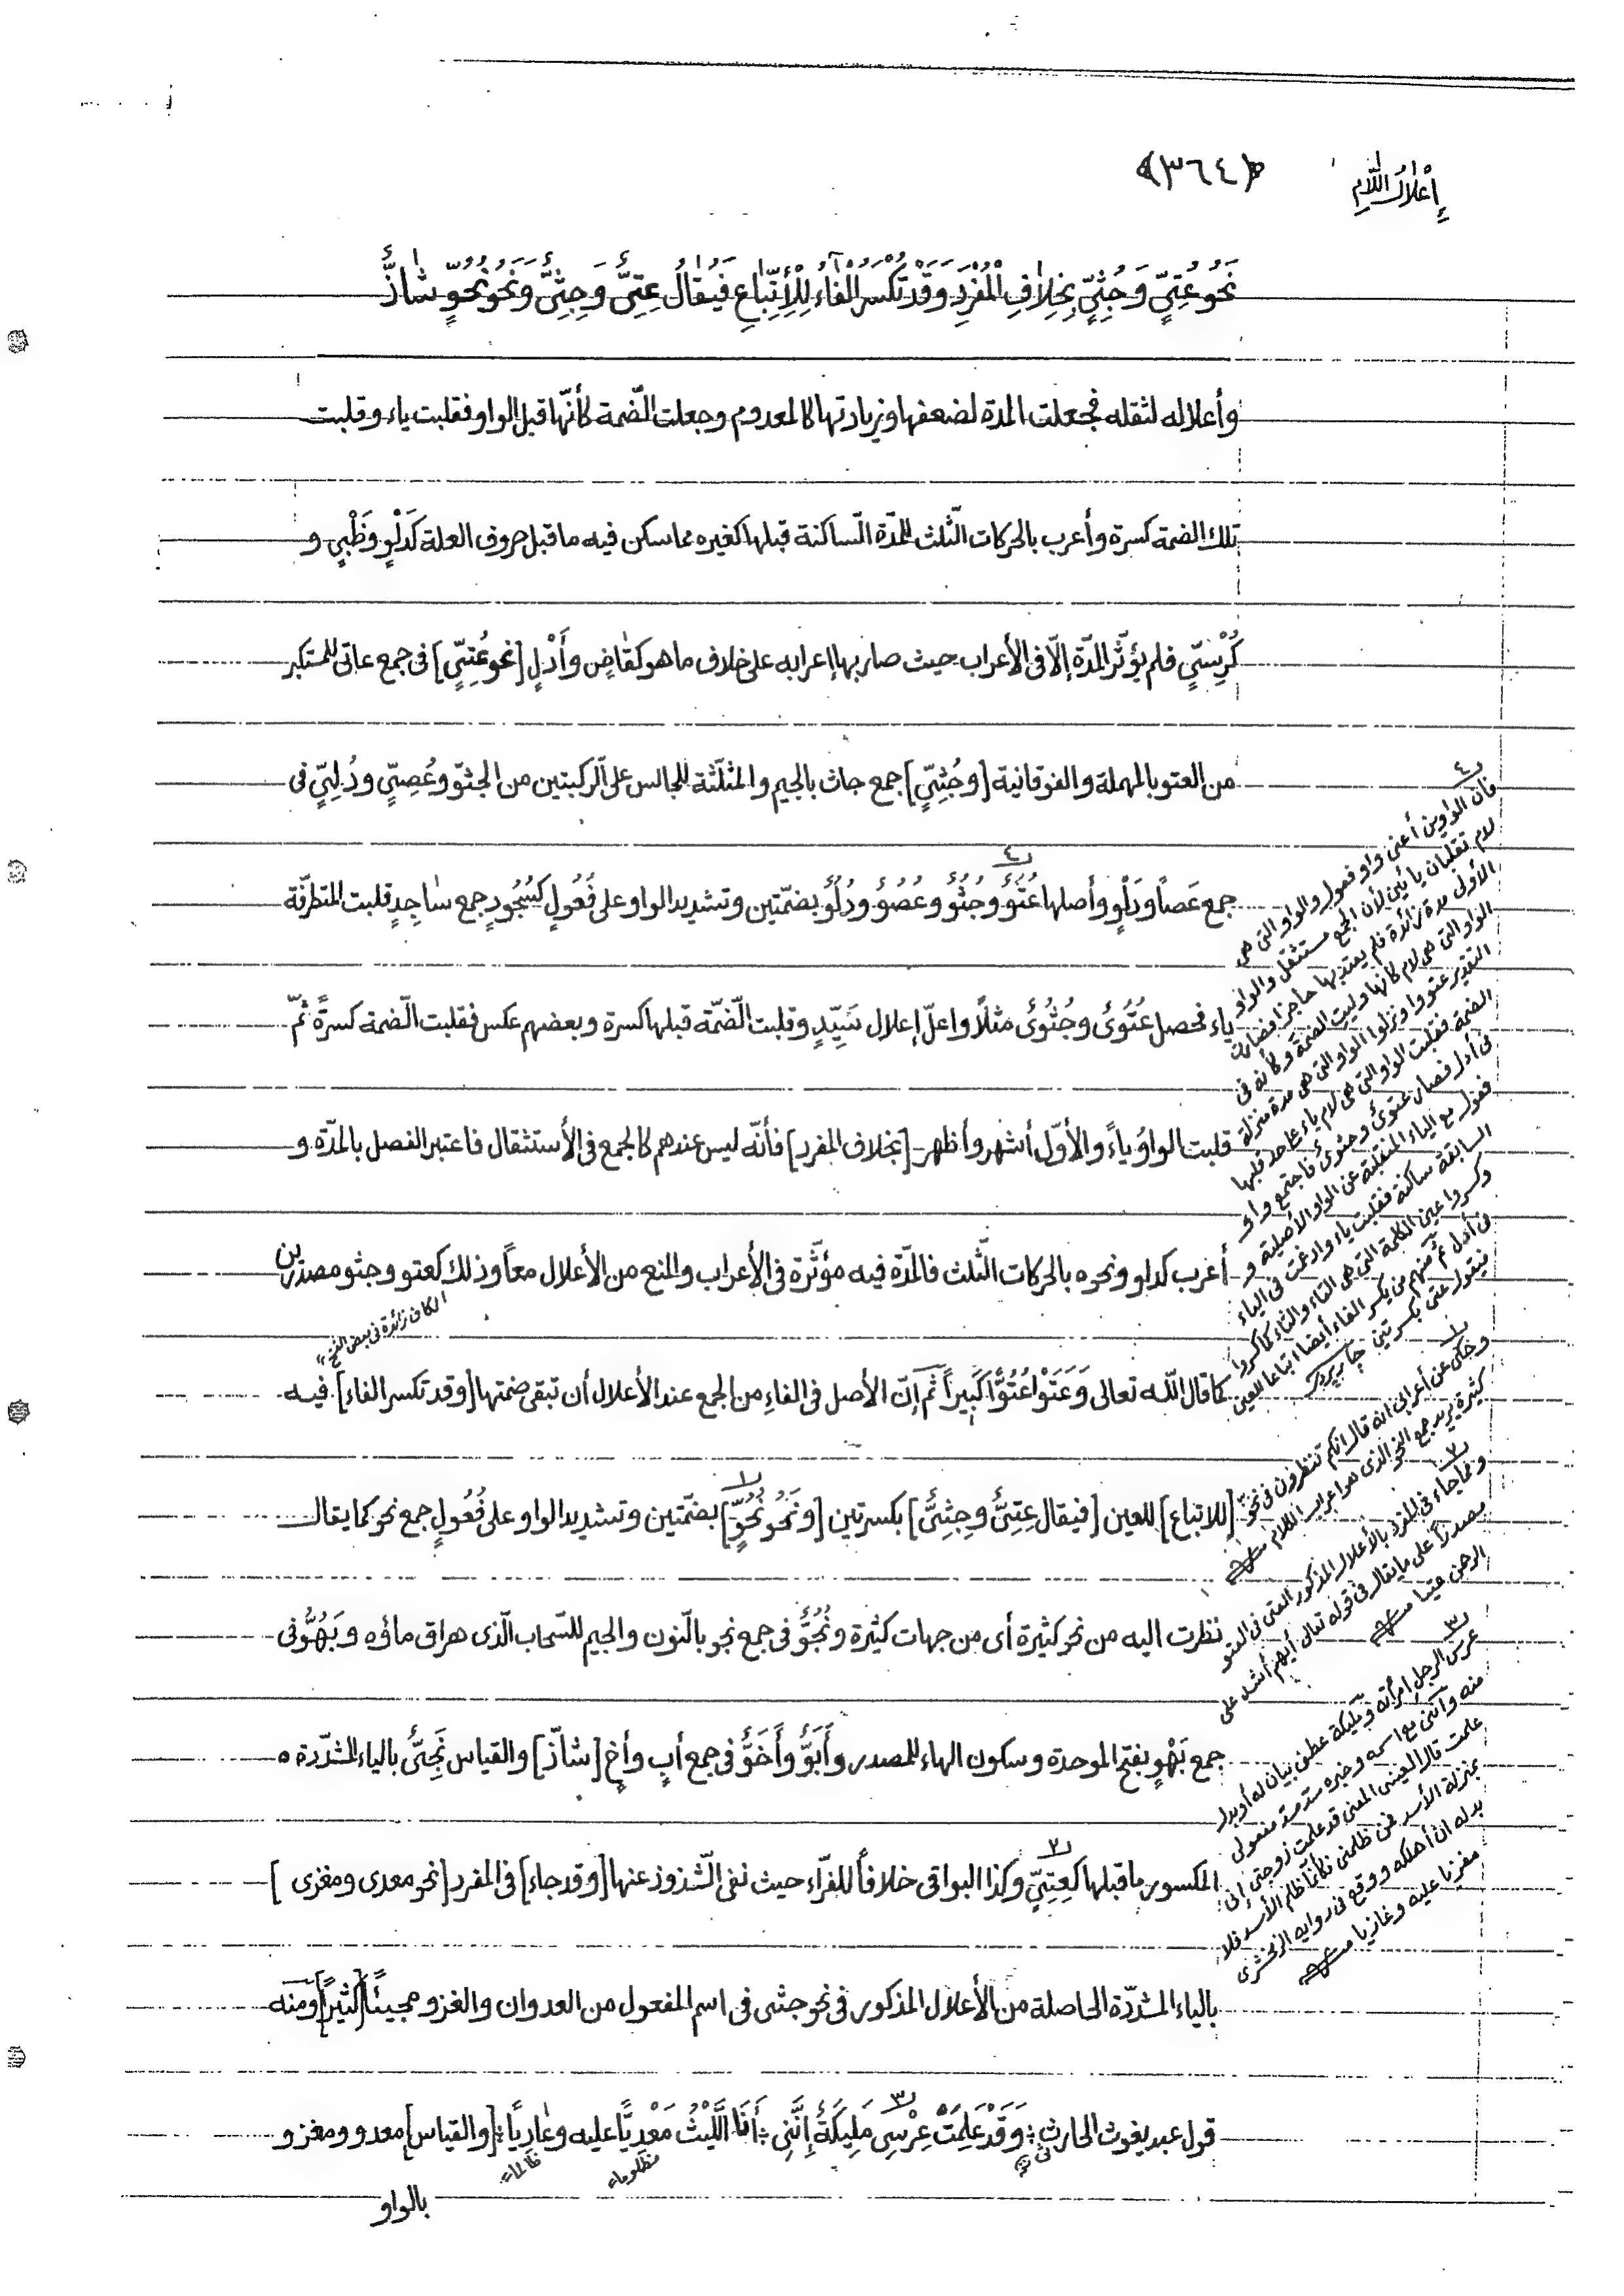 إِعْلَالُ اللَّامِ
﴿٣٦٤﴾
نَحْوُ عُتِيٍّ وَجُثِيٍّ بِخِلَافِ الْمُفْرَدِ وَقَدْ تُكْسَرُ الْفَاءُ لِلْأِتْبَاعِ فَيُقَالُ عِتِيٌّ وَجِثِيٌّ وَنَحْوُ نُحُوٍّ شَاذٌّ
وأعلاله لثقله فجعلت المدة لضعفها وزيادتها كالمعدوم وجعلت الضّمة كأنّها قبل الواو فقلبت ياء وقلبت
تلك الضمة كسرة وأعرب بالحركات الثّلث للمدّة السّاكنة قبلها كغيره مما سكن فيه ما قبل حروف العلة كَدَلْوٍ وَظَبْيٍ و
كُرْسِيٍّ فلم يؤثّر المدّة إلّا فى الأعراب حيث صار بها إعرابه على خلاف ما هو كقَاضٍ وأَدْلٍ [نحو عُتِيٍّ] فى جمع عاتى للمستكبر
من العتو بالمهملة والفوقانية [وجُثِيٍّ] جمع جاث بالجيم والمثلّثة للجالس على الرّكبتين من الجثوّ وعُصِيٍّ ودُلِيٍّ فى
جمع عَصاً ودَلْوٍ وأصلها عُتُوٌّ وجُثُوٌّ وعُصُوٌّ ودُلُوٌّ بضمّتين وتشديد الواو على فُعُولٍ كَسُجُودٍ جمع سَاجِدٍ قلبت المتطرّفة
ياء فحصل عُتُوىٌ وجُثُوىٌ مثلًا واعلّ إعلال سَيِّدٍ وقلبت الضّمّة قبلها كسرة وبعضهم عكس فقلبت الضّمة كسرةً ثمّ
قلبت الواوُ ياءً والأوّل أشهر وأظهر [بخلاف المفرد] فأنّه ليس عندهم كالجمع فى الأستثقال فاعتبر الفصل بالمدّة و
أعرب كدلو ونحوه بالحركات الثّلث فالمدّة فيه مؤثّرة فى الأعراب والمنع من الأعلال معاً وذلك كعتو وجثو مصدرين
الكاف زائدة فى بعض النسخ
كما قال اللّٰه تعالى وَعَتَوْا عُتُوًّا كَبِيراً ثم إنّ الأصل فى الفاءِ من الجمع عند الأعلال أن تبقى ضمتها [وقد تكسر الفاء] فيه
[للاتباع] للعين [فيقال عِتِيٌّ وجِثِيٌّ] بكسرتين [ونَحْوُ نُحُوٍّ] بضمّتين وتشديد الواو على فُعُولٍ جمع نحو كما يقال
نظرت اليه من نحو كثيرة أى من جهات كثيرة ونُجُوٌّ فى جمع نجو بالنّون والجيم للسّحاب الّذى هراق مائه وبَهُوٌّ فى
جمع بَهْوٍ بفتح الموحدة وسكون الهاء للمصدر وأَبَوٌّ وأَخَوٌّ فى جمع أبٍ وأخٍ [شاذّ] والقياس نُجِىٌّ بالياء المشدّدة ه
المكسور ما قبلها كعِتِيٍّ وكذا البواقى خلافاً للفرّاء حيث نفى الشّذوذ عنها [وقد جاء] فى المفرد [نحو معدى ومغزى]
بالياء المشدّدة الحاصلة من الأعلال المذكور فى نحو جثى فى اسم المفعول من العدوان والغزو مجيئًا [كثيراً] ومنه
قول عبد يغوث الحارثى: وَقَدْ عَلِمَتْ عِرْسِى مَلِيكَةُ إِنَّنِى: أَنَا اللَّيْثُ مَعْدِيًّا عليه وعَادِيًا: [والقياس] معدو ومغزو
مظلوما
ظالما
بالواو
٤
فان الواوين أعنى واو فعول والواو التى هى
لام تقلبان يائين لأن الجمع مستثقل والواو
الأولى مدة زائدة فلم يعتد بها حاجزا فصارت
الواو التى هى لام كأنها وليت الضمة وكأنه فى
التقدير عتو وا ونزلوا الواو التى هى مدة منزلة
الضمة فقلبت الواو التى هى لام ياء على حد قلبها
فى أدل فصار عتوى وجثوى فاجتمع واو
فعول مع الياء المنقلبة عن الواو الأصلية و
السابقة ساكنة فقلبت ياء وادغمت فى الياء
وكسروا عين الكلمة التى هى التاء والثاء كما كسروا
فى أدل ثم منهم من يكسر الفاء أيضا اتباعا للعين
فيقول عتى بكسرتين جاربردى
١
وحكى عن أعرابى انه قال انكم تنظرون فى نحوّ
كثيرة يريد جمع النحو الذى هو اعراب الكلام
٢
ومما جاء فى المفرد بالأعلال المذكور العتى فى العتو
مصدرا على ما يقال فى قوله تعالى أيهم أشد على
الرحمن عتيا
٣
عرس الرجل امرأته ومليكة عطف بيان له أو بدل
منه وأننى مع اسمه وخبره سد مسد مفعولى
علمت قال العينى المعنى قد علمت زوجتى إنى
بمنزلة الأسد فمن ظلمنى فكأنما ظلم الأسد فلا
بد له ان أهلكه ووقع فى رواية الزمخشرى
مغزيا عليه وغازيا